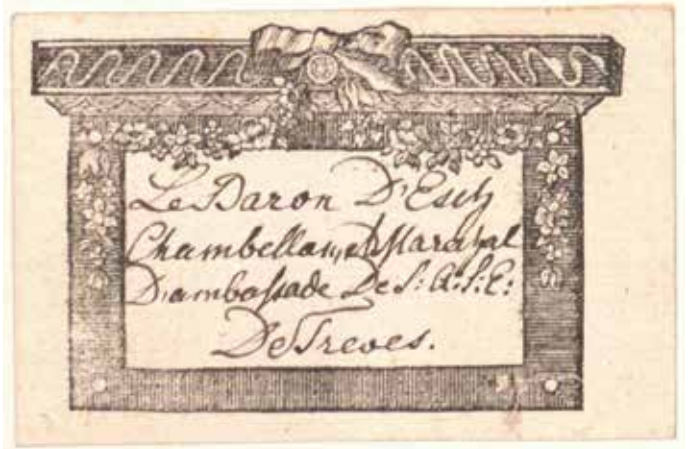 Le Baron D'Esch
Chambellan, et Marechal
D'ambassade De S: A: S: E:
De Treves.